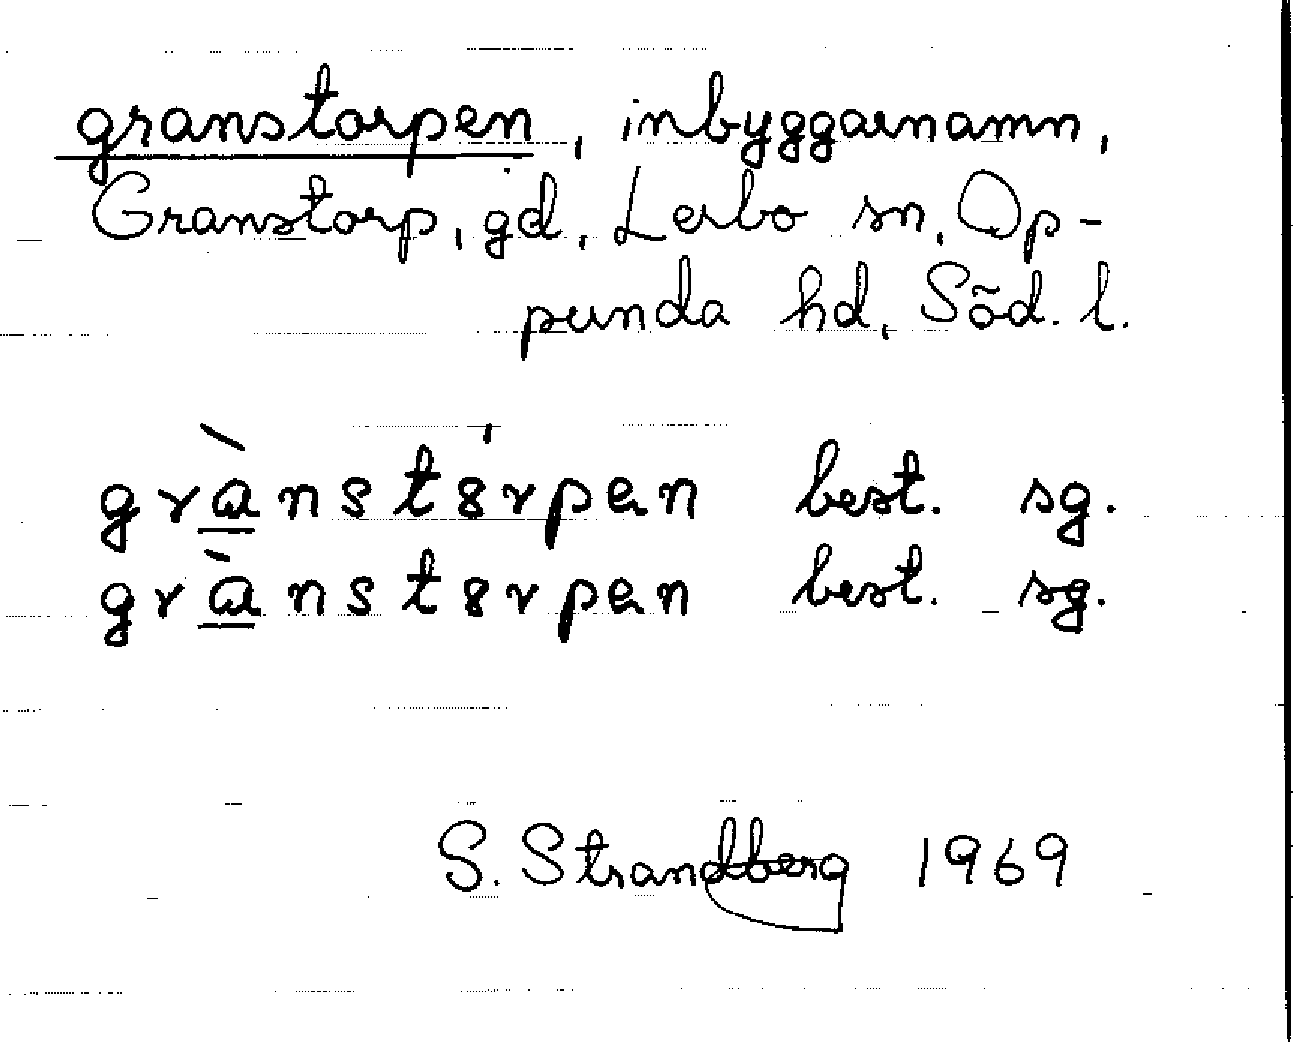 granstorpen, inbyggarnamn,
Granstorp, gd, Lerbo sn, Op-
punda hd, Söd. l.
grànst8rpen best. sg.
grànst8rpen best. sg.
S. Strandberg 1969